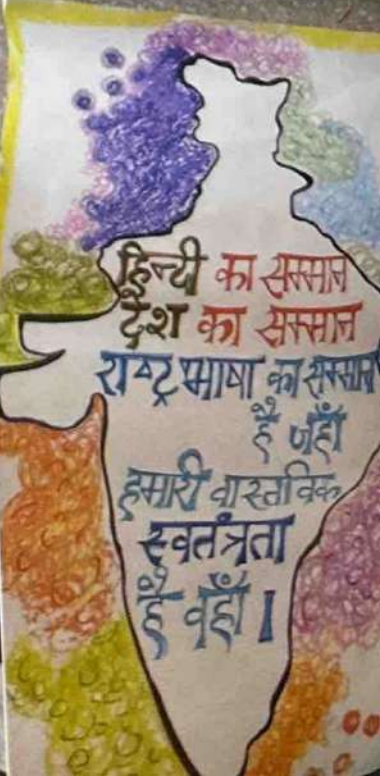 हिन्दी का सम्मान
देश का सम्मान
राष्ट्रभाषा का सम्मान
है जहाँ
हमारी वास्तविक
स्वतंत्रता
है वहाँ।